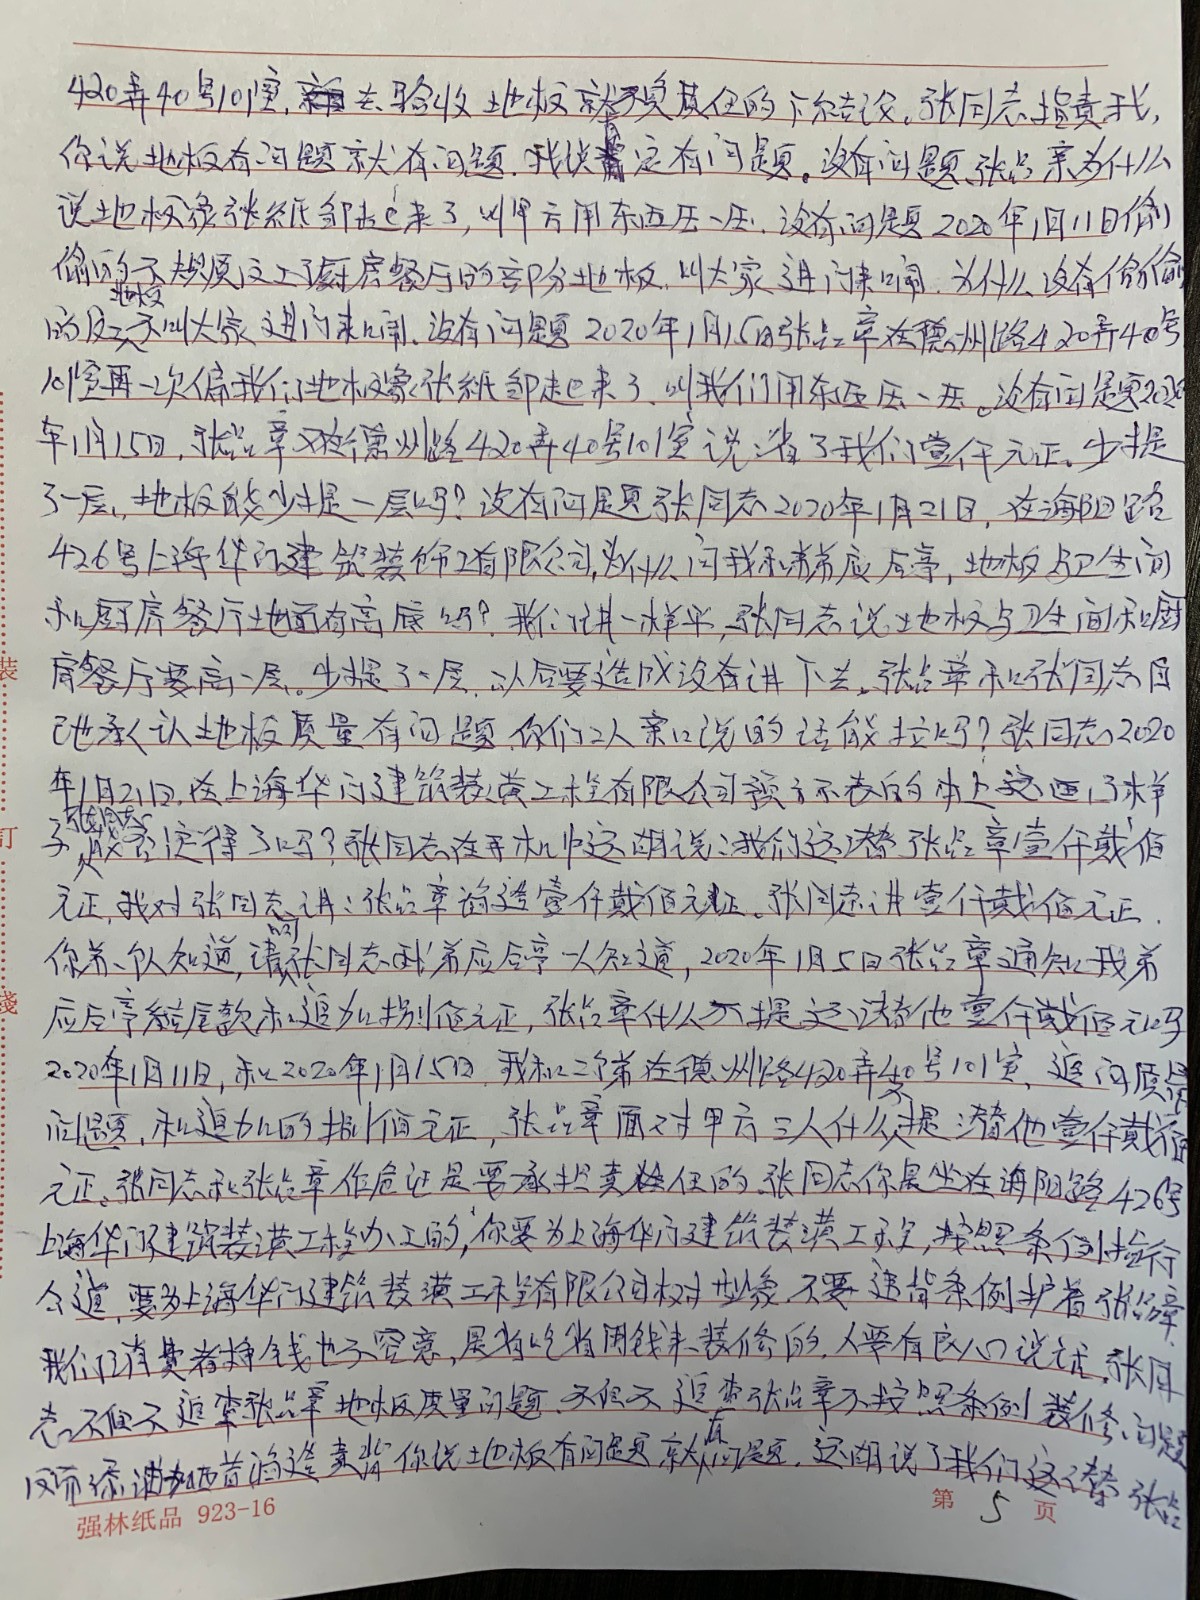 420弄40号101室,去验收地板就要负责任的下结论。张同志指责我,
你说地板有问题就有问题.我说肯定有问题。没有问题张品章为什么
说地板像张纸邹起来了,叫甲方用东西压一压.没有问题2020年1月11日偷
偷的不规质反工了厨房餐厅的部分地板.叫大家进门来闹.为什么没有偷偷
的反地板不叫大家进门来闹.没有问题2020年1月15日张品章在德州路420弄40号
101室再一次偏我们地板象张纸邹起来了.叫我们用东西压一压。没有问题2020
年1月15日,张品章又在德州路420弄40号101室说:省了我们壹仟元正。少提
了一层,地板能少提一层吗?没有问题张同志2020年1月21日,在海阳路
426号上海华门建筑装饰工有限公司,为什么问我和弟弟应后亭,地板与卫生间
和厨房餐厅地面有高底吗?我们讲一样平,张同志说地板与卫生间和厨
房餐厅要高一层。少提了一层.以后要造成没有讲下去.张品章和张同志自
己地承认地板质量有问题.你们二人亲口说的话能拉吗?张同志2020
年1月21日.在上海华门建筑装潢工程有限公司预方示表的本上这画了样
子张同志能否定得了吗?张同志在手机中这明说:我们这潜张品章壹仟贰佰
元正,我对张同志讲:张品章诲造壹仟贰佰元正。张同志讲壹仟贰佰元正.
你弟一个人知道,请问张同志我弟应后亭一人知道,2020年1月5日张品章通知我弟
应后亭结尾款和追加捌佰元正,张品章什么不提这潜他壹仟贰佰元吗
2020年1月11日,和2020年1月15日.我和二个弟在德州路420弄40号101室,追问质量
问题,和追加的捌佰元正,张品章面对甲方三人什么不提潜他壹仟贰佰
元正.张同志和张品章作危证是要承担责任的.张同志你是坐在海阳路426号
上海华门建筑装潢工程办工的,你要为上海华门建筑装潢工程,按照条例执行
今道,要为上海华门建筑装潢工程有限公司树型象.不要违背条例护着张品章
我们消费者挣钱也不容意,是省吃省用钱来装修的.人要有良心说话.张同
志不但不追查张品章地板质量问题.不但不追查张品章不按照条例装修问题
反而添油加西昔诲造责背你说地板有问题就有问题.这明说了我们这潜张品
强林纸品 923-16
第 5 页
装
订
线